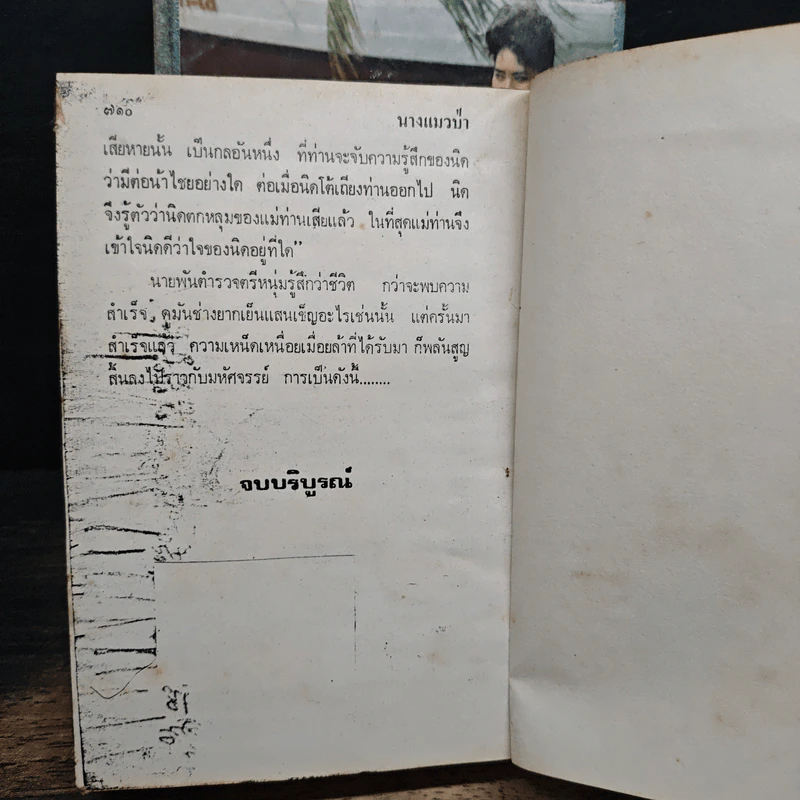 ๗๑๐
นางแมวป่า
เสียหายนั้น เป็นกลอันหนึ่ง ที่ท่านจะจับความรู้สึกของนิด
ว่ามีต่อน้าไชยอย่างใด ต่อเมื่อนิดโต้เถียงท่านอยกไป นิด
จึงรู้ตัวว่านิดตกหลุมของแม่ท่านเสียแล้ว ในที่สุดแม่ท่านจึง
เข้าใจนิดดีว่าใจของนิดอยู่ที่ใด”
นายพันตำรวจตรีหนุ่มรู้สึกว่าชีวิต กว่าจะพบความ
สำเร็จ ดูมันช่างยากเย็นแสนเข็ญอะไรเช่นนั้น แต่ครั้นมา
สำเร็จแล้ว ความเหน็ดเหนื่อยเมื่อยล้าที่ได้รับมา ก็พลันสูญ
สิ้นลงไปราวกับมหัศจรรย์ การเป็นดังนี้........
จบบริบูรณ์